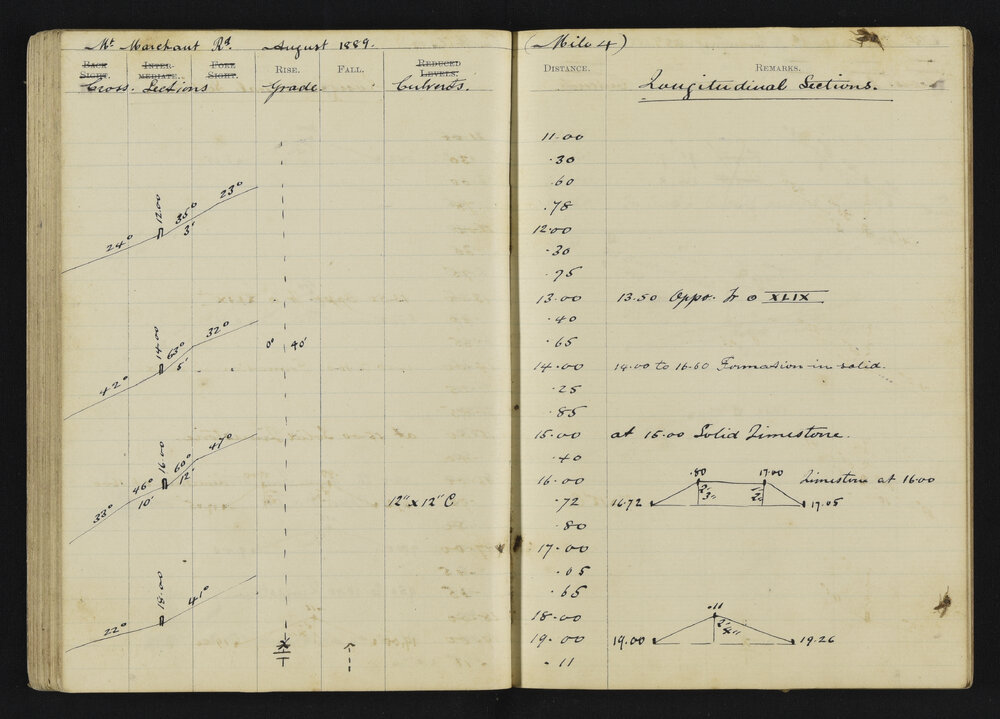 Mt Marchant Rd. August 1889.
BACK SIGHT. INTER-MEDIATE. FORE SIGHT. RISE. FALL. REDUCED LEVELS.
Cross. Sections Grade Culverts.
23°
12.00
35°
3'
24°
32°
14.00
63°
5'
42°
0° 40'
47°
16.00
60°
46°
12'
10'
33°
12" x 12" C
41°
18.00
22°
(Mile 4)
DISTANCE. REMARKS.
Longitudinal Sections.
11.00
.30
.60
.78
12.00
.30
.75
13.00 13.50 Oppo. XLIX
.40
.65
14.00 14.00 to 16.60 Formation in solid.
.25
.85
15.00 at 15.00 Solid Limestone.
.40
16.00 .80 17.00 Limestone at 16.00
.72 16.72 17.05
.80
17.00
.05
.65
18.00 .11
19.00 19.00 2' 4" 19.26
.11